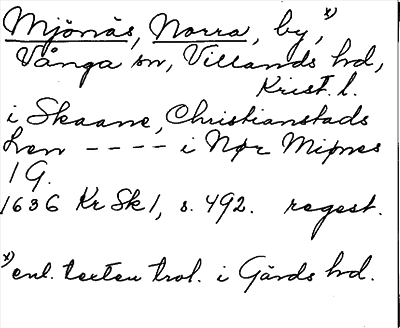 Mjönäs, Norra, by, x)
Vånga sn, Villands hd,
Krist. l.
i Skaane, Christianstads
Len - - - - i Nør Mipnes
1 G.
1636 Kr Sk 1, s. 492. regest.
x) enl. texten trol. i Gärds hd.